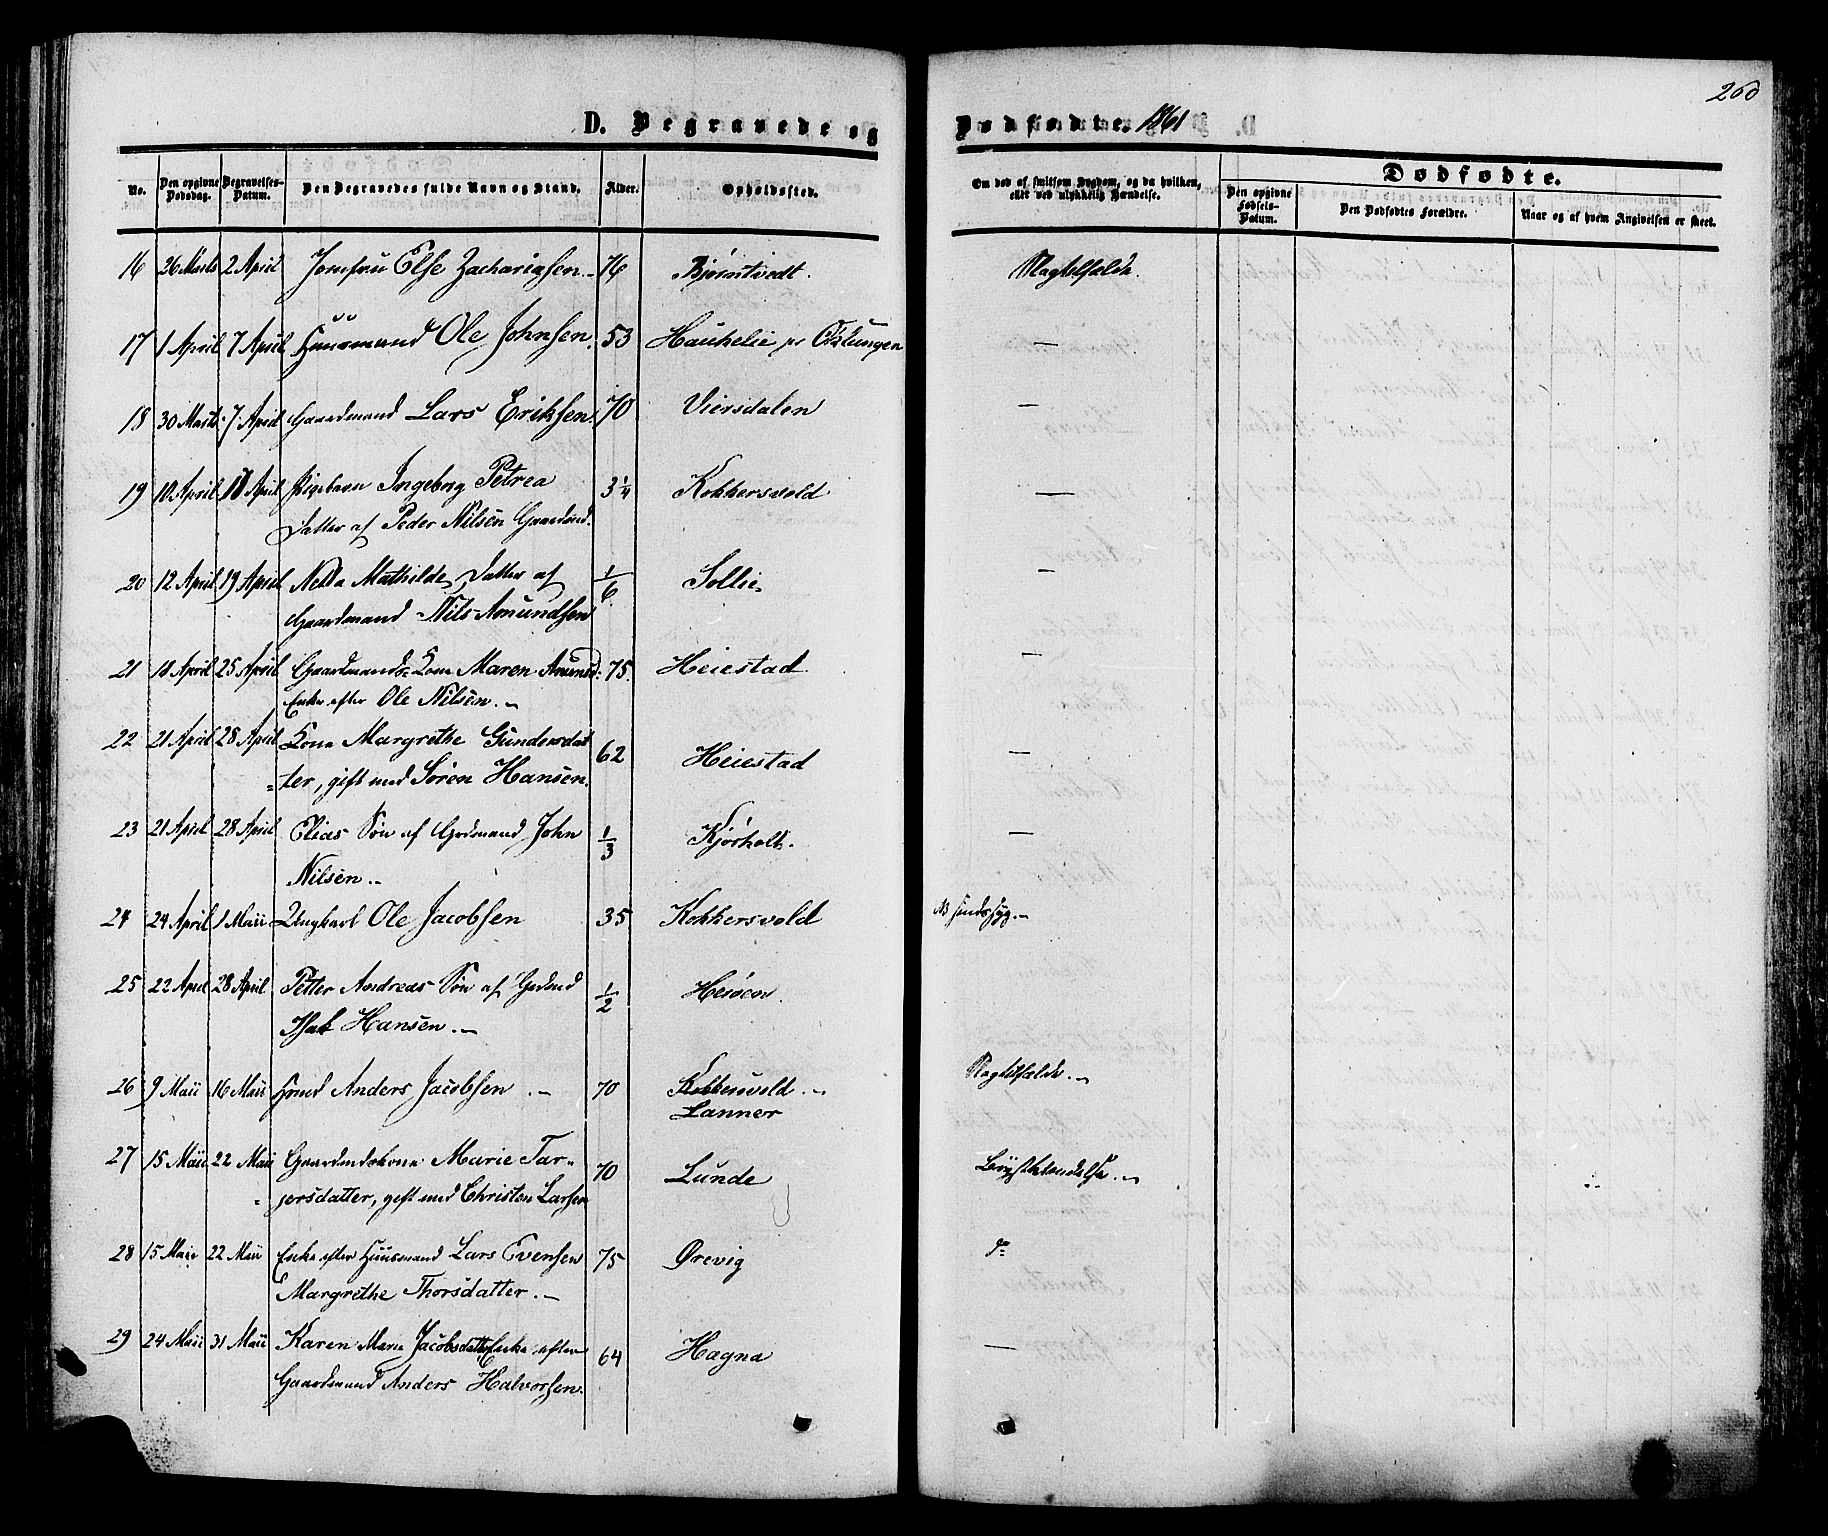 260
D. Begravede og Dødfødte. 1861
No. Den opgivne Dødsdag. Begravelses-Datum. Den Begravedes fulde Navn og Stand. Alder. Opholdssted. Om død af smitsom Sygdom, og da hvilken, eller ved ulykkelig Hændelse. Dødfødte.
Den opgivne Fødsels-Datum. Den Dødfødtes Forældre. Naar og af hvem Angivelsen er skeet.
16 26 Marts 2 April Jomfru Else Zachariasen 76 Bjørntvedt Slagtilfælde.
17 1 April 7 April Huusmand Ole Johnsen. 53 Haukelie pr Øklungen —
18 30 Marts 7 April Gaardmand Lars Eriksen. 70 Viersdalen —
19 10 April 18 April Pigebarn Ingeborg Petrea 3 1/4 Kokkersvold —
Datter af Peder Nilsen Gaardmd.
20 12 April 19 April Mathilde Datter af 1/6 Sollie —
Gaardmand Nils Amundsen
21 18 April 25 April Gaardmands Kone Maren Amundsd: 75. Heiestad —
Enke efter Ole Nilsen. —
22 21 April 28 April Kone Margrethe Gundersdat 62 Heiestad —
ter, gift med Søren Hansen.
23 21 April 28 April Elias Søn af Grdmand John 1/3 Kjørholt. —
Nilsen —
24 24 April 1 Maii Ungkarl Ole Jacobsen 35 Kokkersvold NB Sindssyg. —
25 22 April 28 April Petter Andreas Søn af Grdmd 1/2 Heiøen.
Isak Hansen. —
26 9 Maii 16 Maii Hmd Anders Jacobsen . — 70 Kokkersvold . — Slagtilfælde. —
Lanner
27 15 Maii 22 Maii Gaardmdskone Marie Tar= 70 Lunde Brystbetændelse. —
jersdatter, gift med Christen Larsen
28 15 Maii 22 Maii Enke efter Huusmand Lars Evensen 75 Ørevig Do
Margrethe Thorsdatter. —
29 24 Maii 31 Maii Karen Marie Jacobsdatter Enke efter 64 Hagna —
Gaardmand Anders Halvorsen.